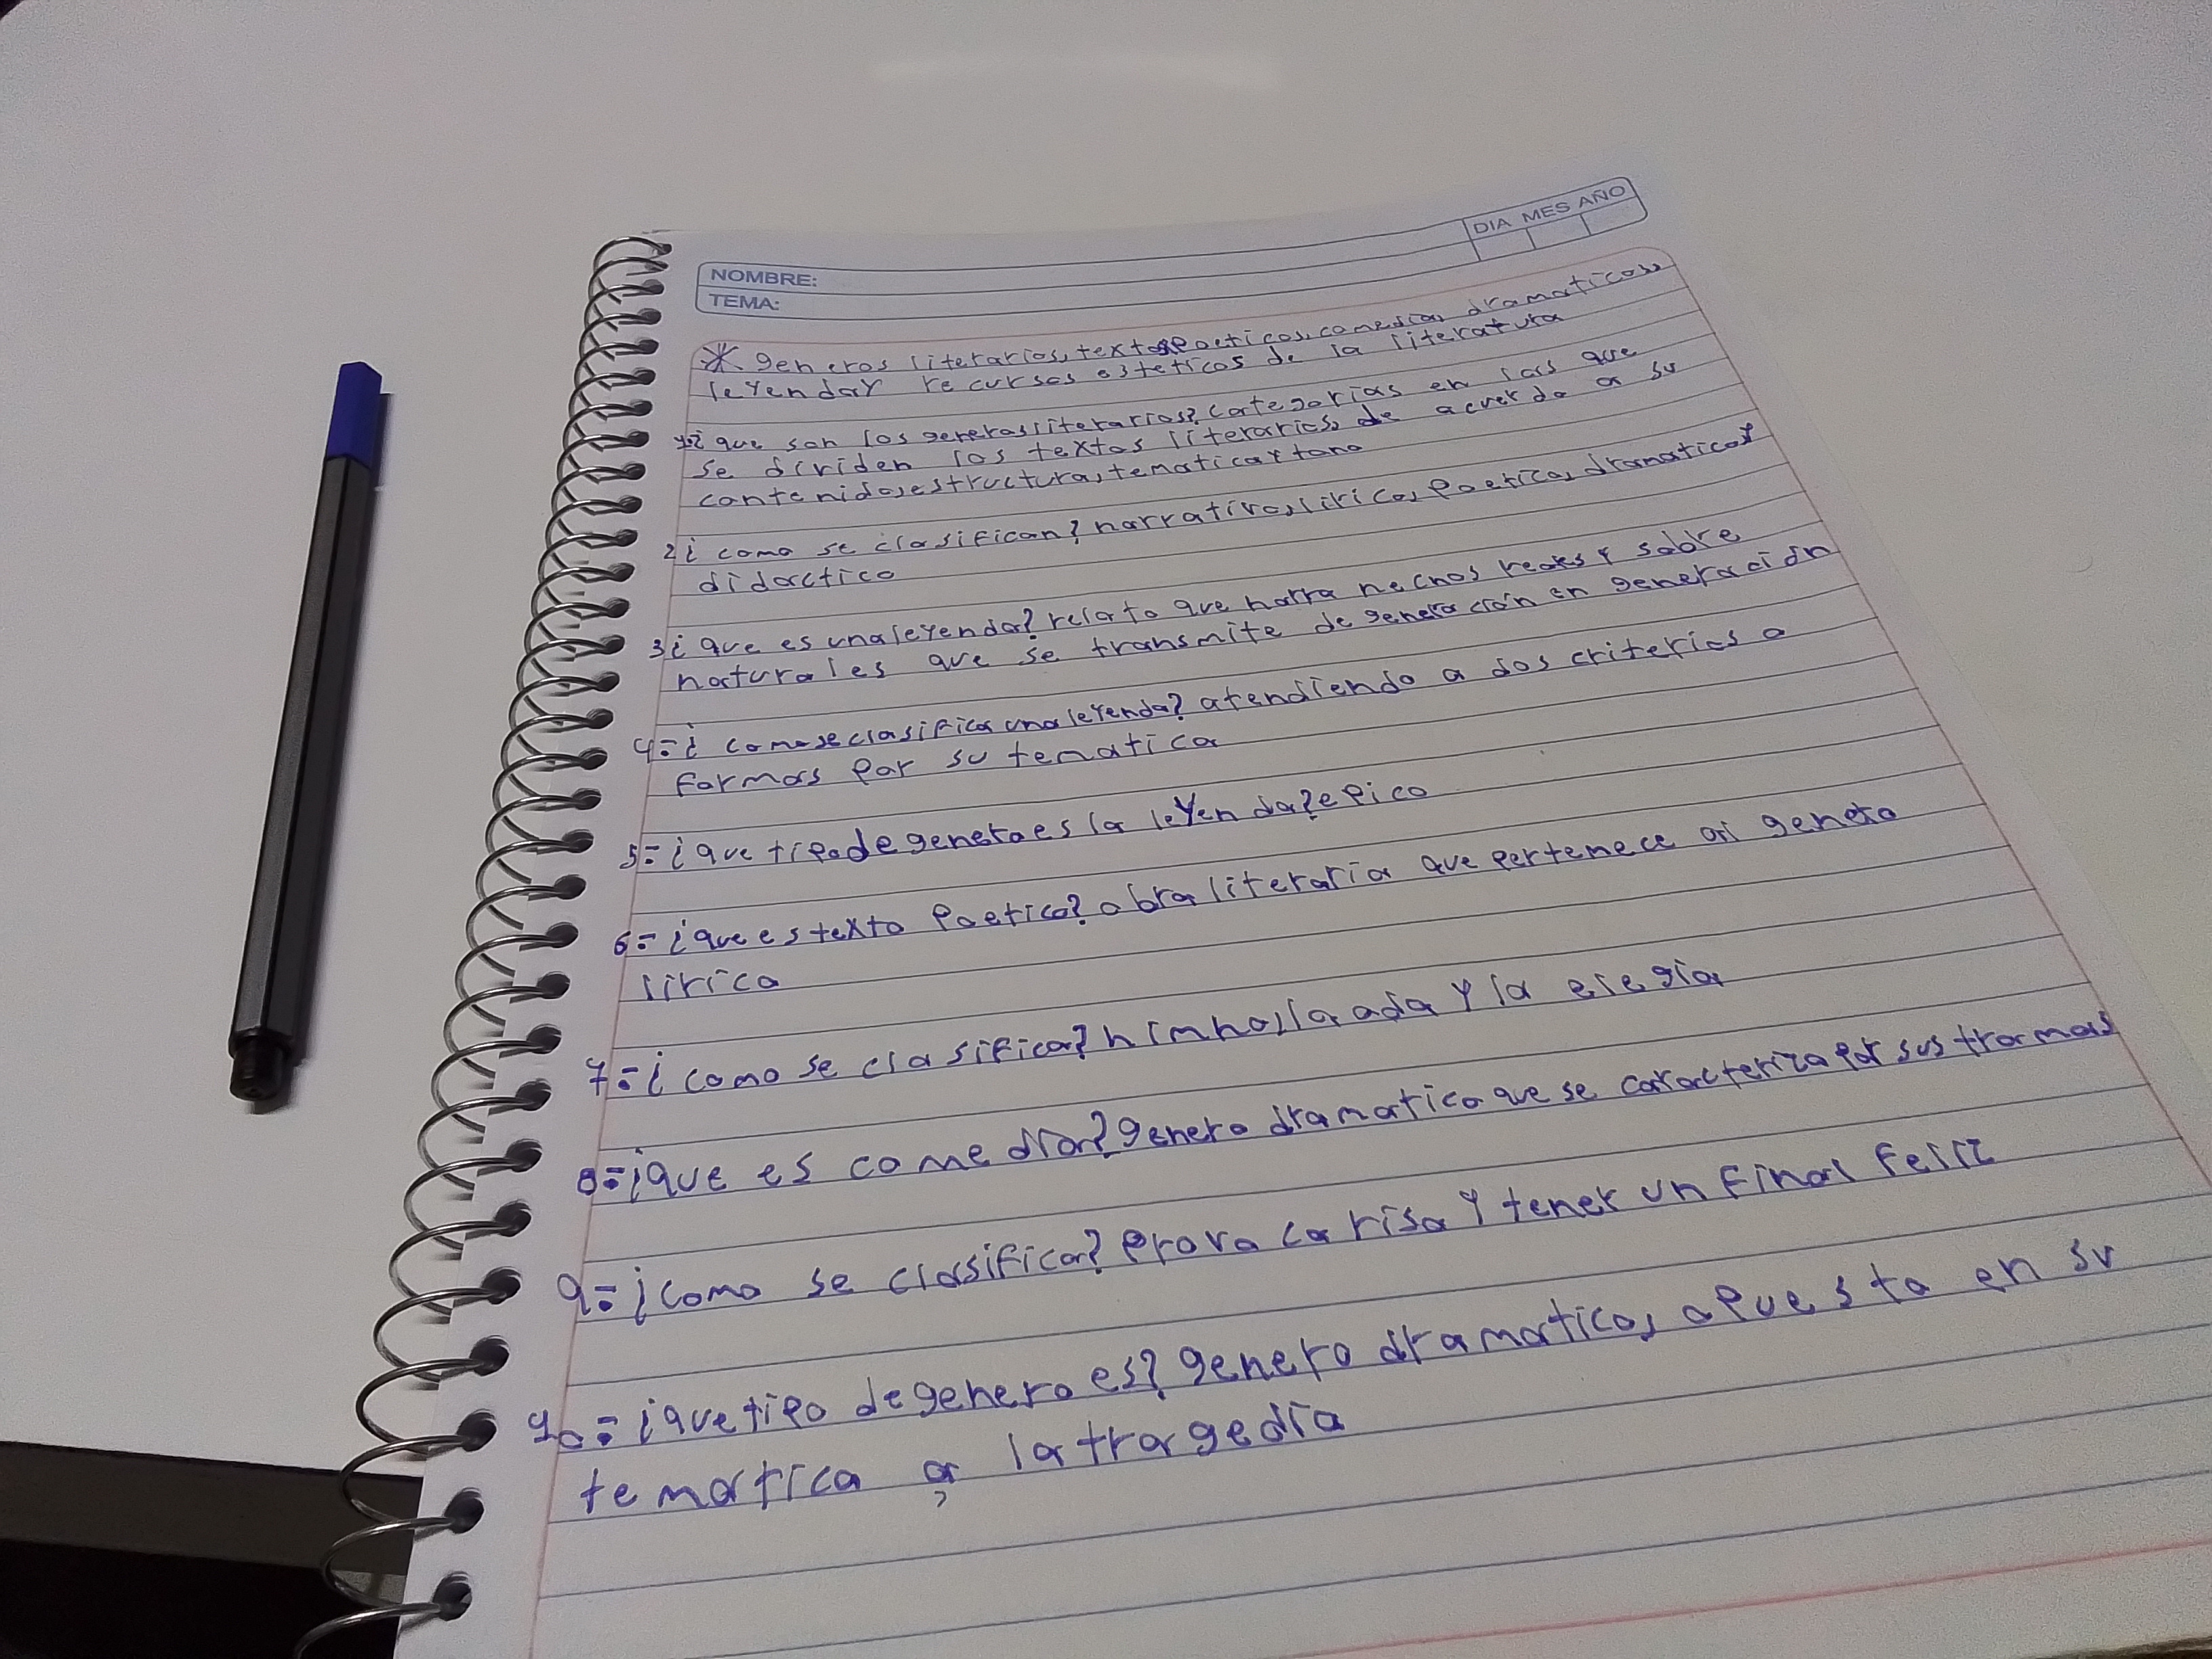 NOMBRE:
DIA MES AÑO
TEMA:
* generos literarios, textos poeticos, comedia, dramaticos,
leyenda y recursos esteticos de la literatura
1=¿que son los generos literarios? categorias en las que
se dividen los textos literarios, de acuerdo a su
contenido, estructura, tematica y tono
2¿ como se clasifican? narrativo, lirico, poetico, dramatico y
didactico
3¿ que es una leyenda? relato que narra hechos reales y sobre
naturales que se transmite de generación en generación
4=¿ como se clasifica una leyenda? atendiendo a dos criterios o
formas por su tematica
5=¿que tipo de genero es la leyenda? epico
6=¿que es texto poetico? obra literaria que pertenece al genero
lirico
7=¿como se clasifica? himno, la oda y la elegia
8=¿que es comedia? genero dramatico que se caracteriza por sus tramas
9=¿como se clasifica? provoca risa y tener un final feliz
10=¿que tipo de genero es? genero dramatico, opuesto en su
tematica a la tragedia